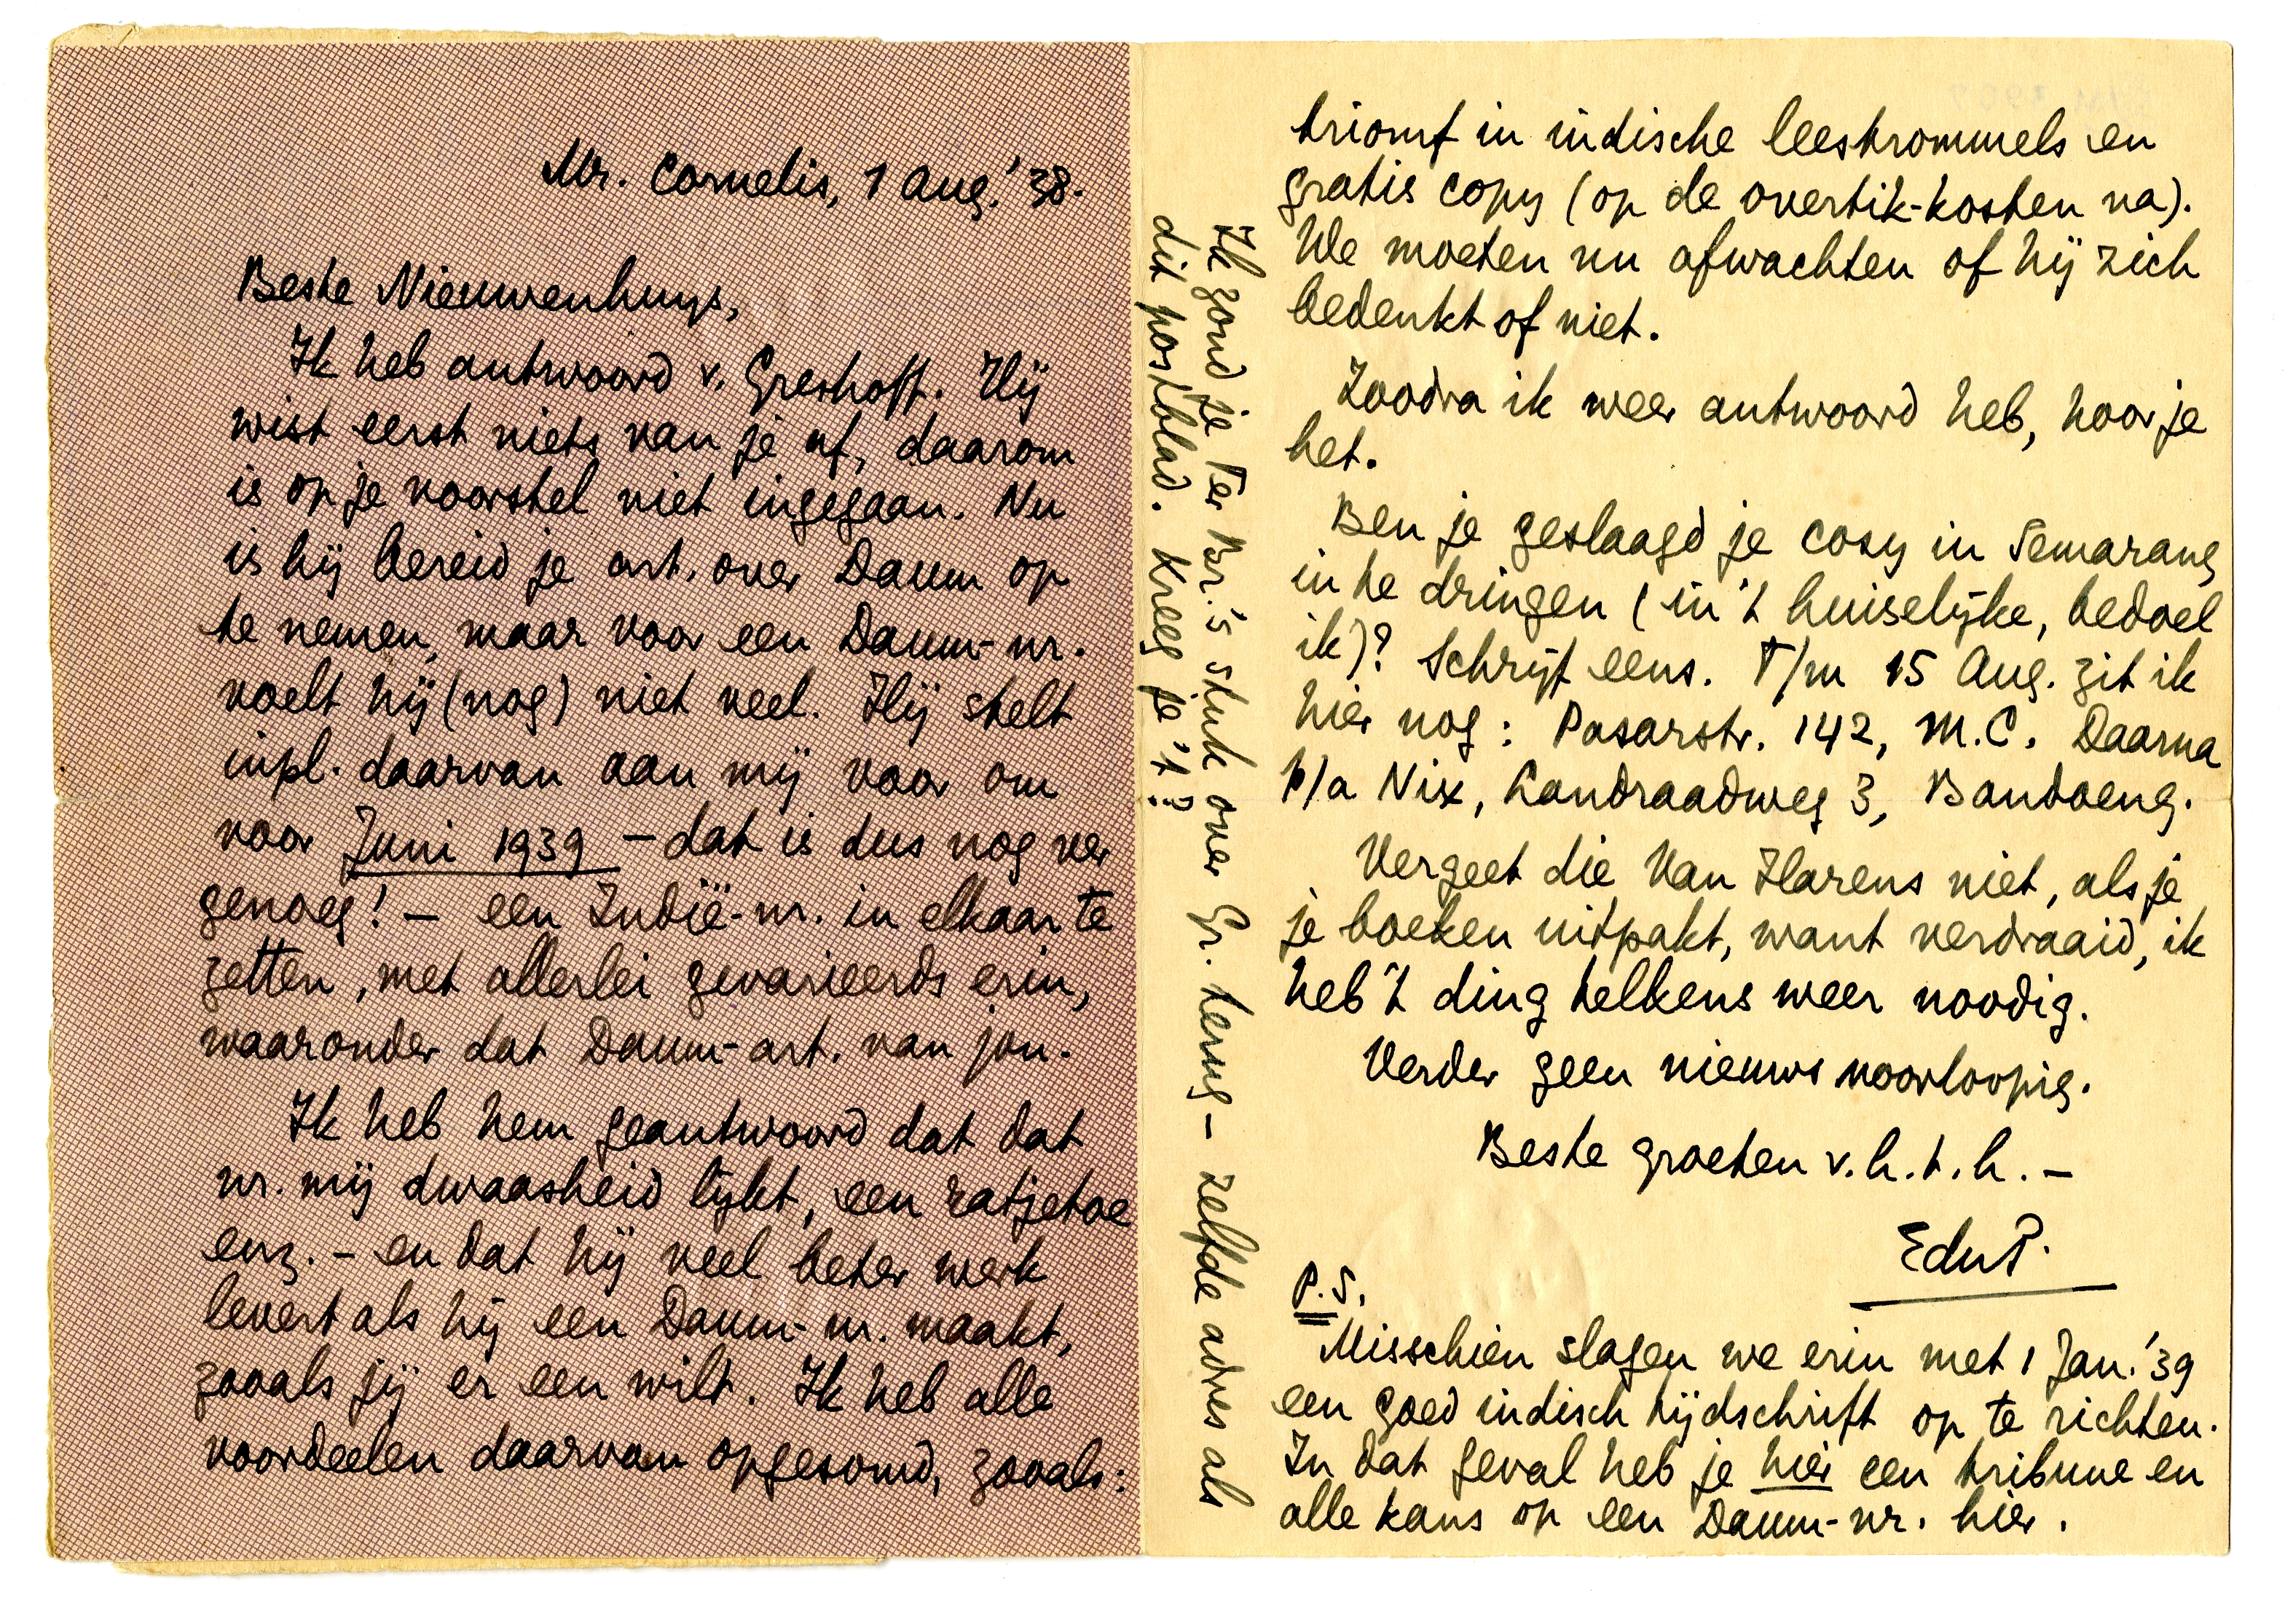 Mr. Cornelis, 1 Aug. '38.
Beste Nieuwenhuys,
Ik heb antwoord v. Greshoff. Hij
wist eerst niets van je af, daarom
is op je voorstel niet ingegaan. Nu
is hij bereid je art. over Daum op
te nemen, maar voor een Daum-nr.
voelt hij (nog) niet veel. Hij stelt
inpl. daarvan aan mij voor om
voor Juni 1939 – dat is dus nog ver
genoeg! – een Indië-nr. in elkaar te
zetten, met allerlei gevarieerds erin,
waaronder dat Daum-art. van jou.
Ik heb hem geantwoord dat dat
nr. mij dwaasheid lijkt, een ratjetoe
enz. – en dat hij veel beter werk
levert als hij een Daum-nr. maakt,
zooals jij er een wilt. Ik heb alle
voordeelen daarvan opgesomd, zooals:
triomf in indische leestrommels en
gratis copy (op de overtik-kosten na).
We moeten nu afwachten of hij zich
bedenkt of niet.
Zoodra ik weer antwoord heb, hoor je
het.
Ben je geslaagd je cosy in Semarang
in te dringen (in 't huiselijke, bedoel
ik)? Schrijf eens. T/m 15 Aug. zit ik
hier nog: Pasarstr. 142, M.C. Daarna
p/a Nix, Landraadweg 3, Bandoeng.
Vergeet die Van Harens niet, als je
je boeken uitpakt, want verdraaid, ik
heb 't ding telkens weer noodig.
Verder geen nieuws voorloopig.
Beste groeten v.h.t.h. –
EduP.
P.S.
Misschien slagen we erin met 1 Jan. '39
een goed indisch tijdschrift op te richten.
In dat geval heb je hier een tribune en
alle kans op een Daum-nr. hier.
Ik zond je Ter Br.'s stuk over Gr. terug – zelfde adres als
dit postblad. Kreeg je 't?